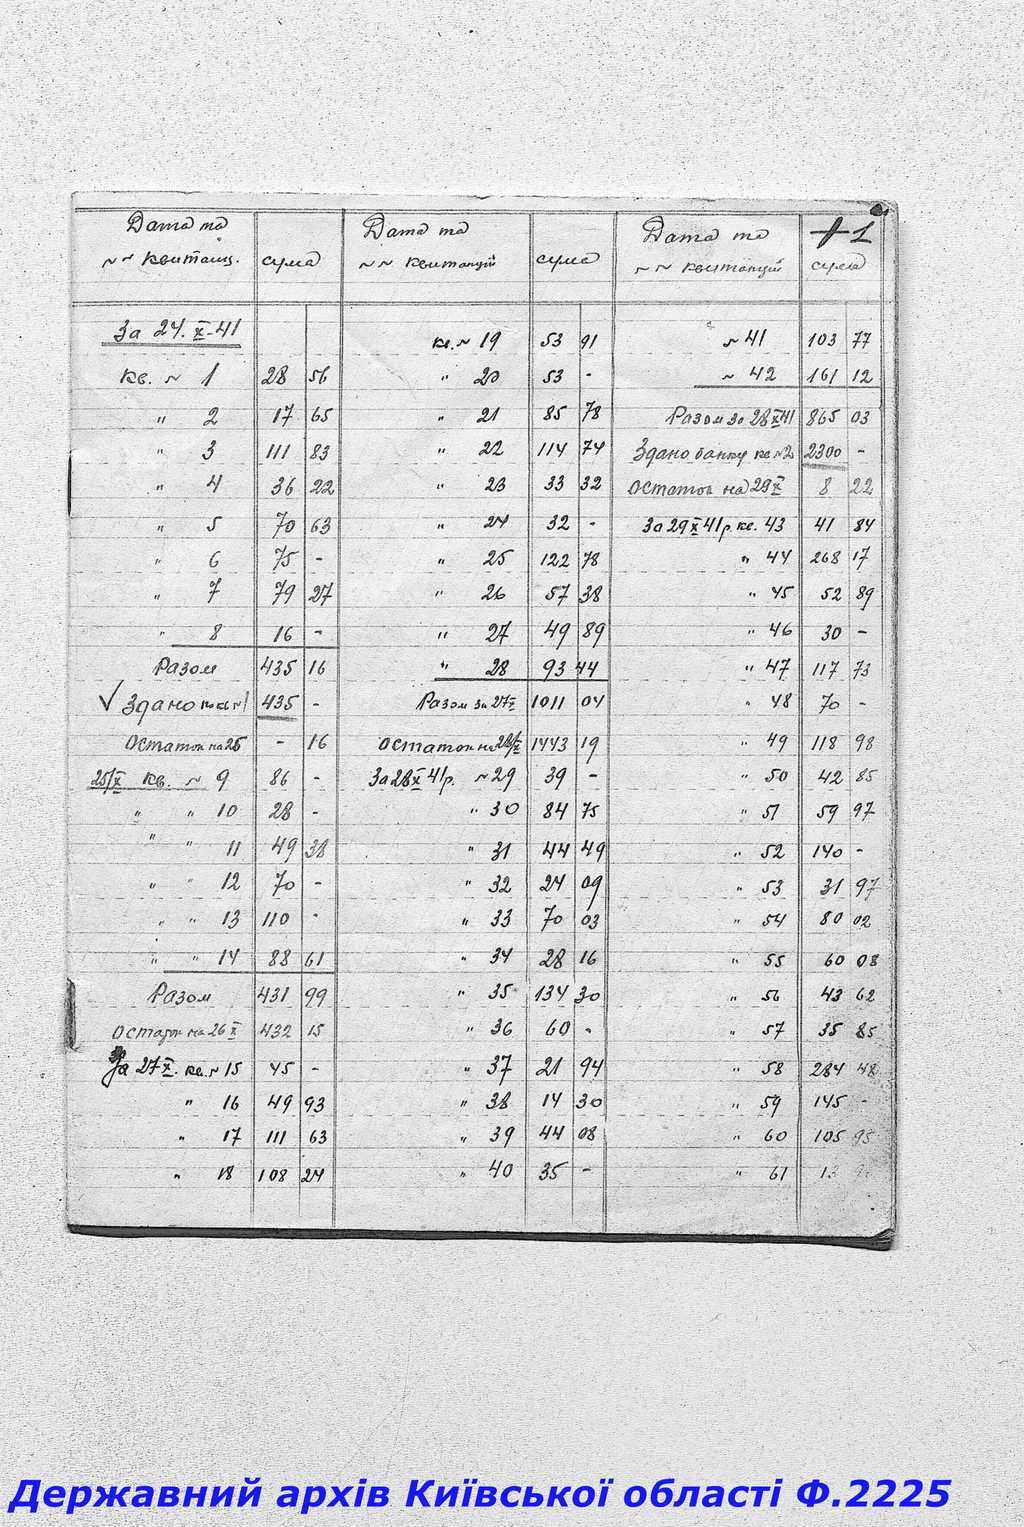 Дата та
~ ~ квитанц. сума
За 24. X-41
кв. ~ 1 28 56
" 2 17 65
" 3 111 83
" 4 36 22
" 5 70 63
" 6 75 -
" 7 79 27
" 8 16 -
Разом 435 16
√ Здано кв ~1 435 -
Остаток на 25 - 16
25/X кв. ~ 9 86 -
" " 10 28 -
" " 11 49 38
" " 12 70 -
" " 13 110 -
" " 14 88 61
Разом 431 99
Остаток на 26 X 432 15
За 27 X. кв. ~ 15 45 -
" 16 49 93
" 17 111 63
" 18 108 24
Дата та
~ ~ квитанцій сума
кв. ~ 19 53 91
" 20 53 -
" 21 85 78
" 22 114 74
" 23 33 32
" 24 32 -
" 25 122 78
" 26 57 38
" 27 49 89
" 28 93 44
Разом за 27 X 1011 04
Остаток на 28/X 1443 19
За 28 X 41р. ~ 29 39 -
" 30 84 75
" 31 44 49
" 32 24 09
" 33 70 03
" 34 28 16
" 35 134 30
" 36 60 -
" 37 21 94
" 38 14 30
" 39 44 08
" 40 35 -
1
Дата та
~ ~ квитанцій сума
~ 41 103 77
~ 42 161 12
Разом за 28 X 41 865 03
Здано банку кв ~2 2300 -
Остаток на 29 X 8 22
За 29 X 41р. кв. 43 41 84
" 44 268 17
" 45 52 89
" 46 30 -
" 47 117 73
" 48 70 -
" 49 118 98
" 50 42 85
" 51 59 97
" 52 140 -
" 53 31 97
" 54 80 02
" 55 60 08
" 56 43 62
" 57 35 85
" 58 284 48
" 59 145 -
" 60 105 95
" 61
Державний архів Київської області Ф.2225